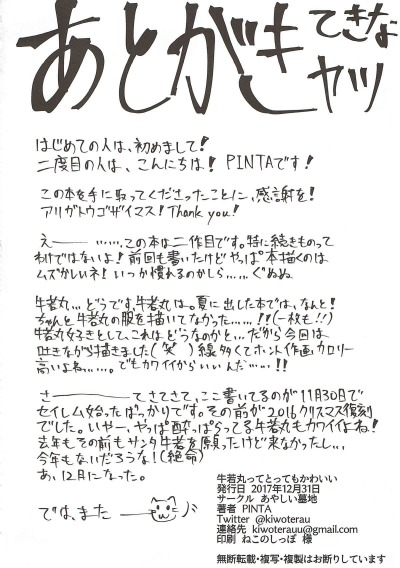 あとがき てきな
ヤツ
はじめての人は、初めまして!
二度目の人は、こんにちは! PINTAです!
この本を手に取ってくださったことに、感謝を!
アリガトウゴザイマス! Thank you!
えー ……この本は二作目です。特に続きものって
わけではないよ! 前回も書いたけどやっぱ本描くのは
ムズかしいネ! いつか慣れるのかしら…… ぐぬぬ
牛若丸…どうです、牛若丸は。夏に出した本では、なんと!
ちゃんと牛若丸の服を描いてなかった……!!(一枚も!!)
牛若丸好きとして、これはどうなのかと…だから今回は
吐きながら描きました(笑) 線多くてホント作画カロリー
高いよね……。でもカワイイからいいんだ……!!
さーーてさてさて、ここ書いてるのが11月30日で
セイレム始ったばっかりです。その前が2016クリスマス復刻
でした。いやー、やっぱ酔っぱらってる牛若丸もカワイイよね!
去年もその前もサンタ牛若を願ったけど来なかったし…
今年もないだろうな!(絶命)
あ、12月になった。
では、また
牛若丸ってとってもかわいい
発行日 2017年12月31日
サークル あやしい墓地
著者 PINTA
Twitter @kiwoterau
連絡先 kiwoterauu@gmail.com
印刷 ねこのしっぽ 様
無断転載・複写・複製はお断りしています